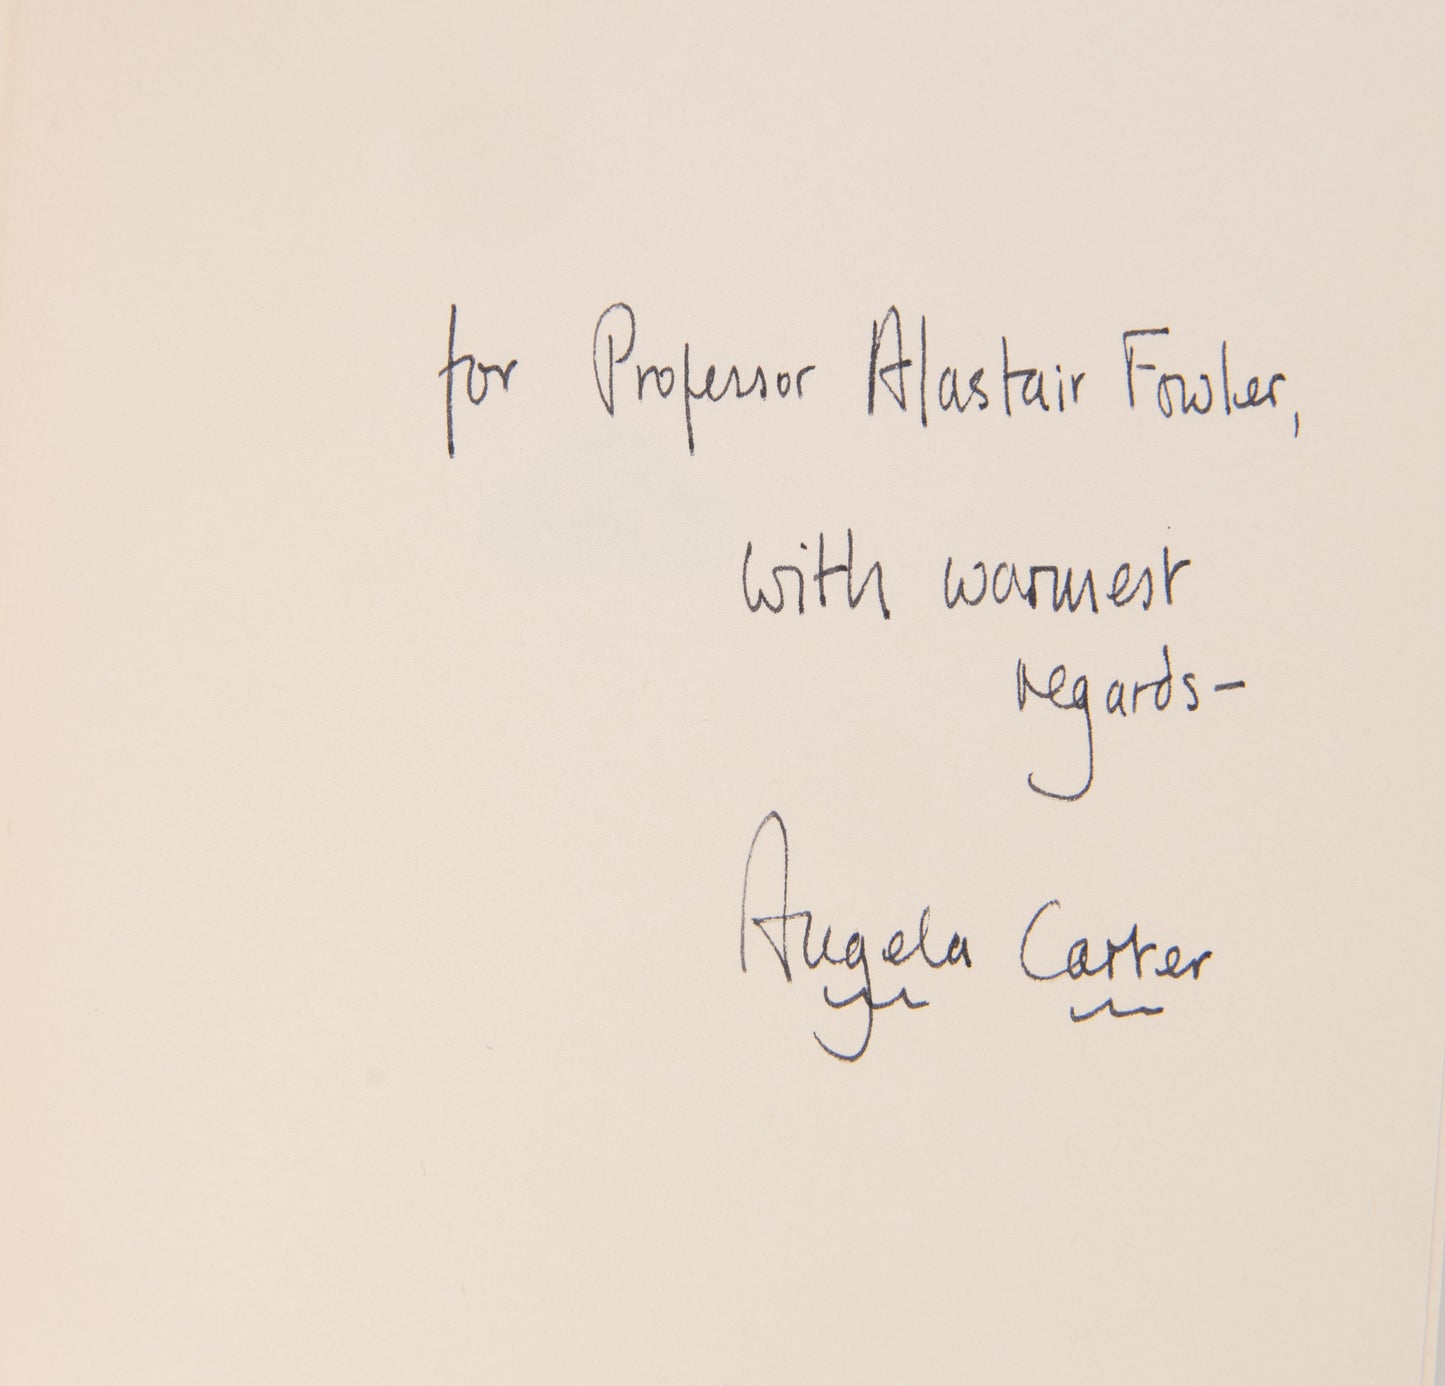 for Professor Alastair Fowler,
with warmest
regards-
Angela Carter